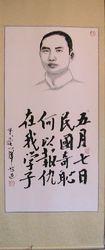 五月七日
民國奇恥
何以報仇
在我學子